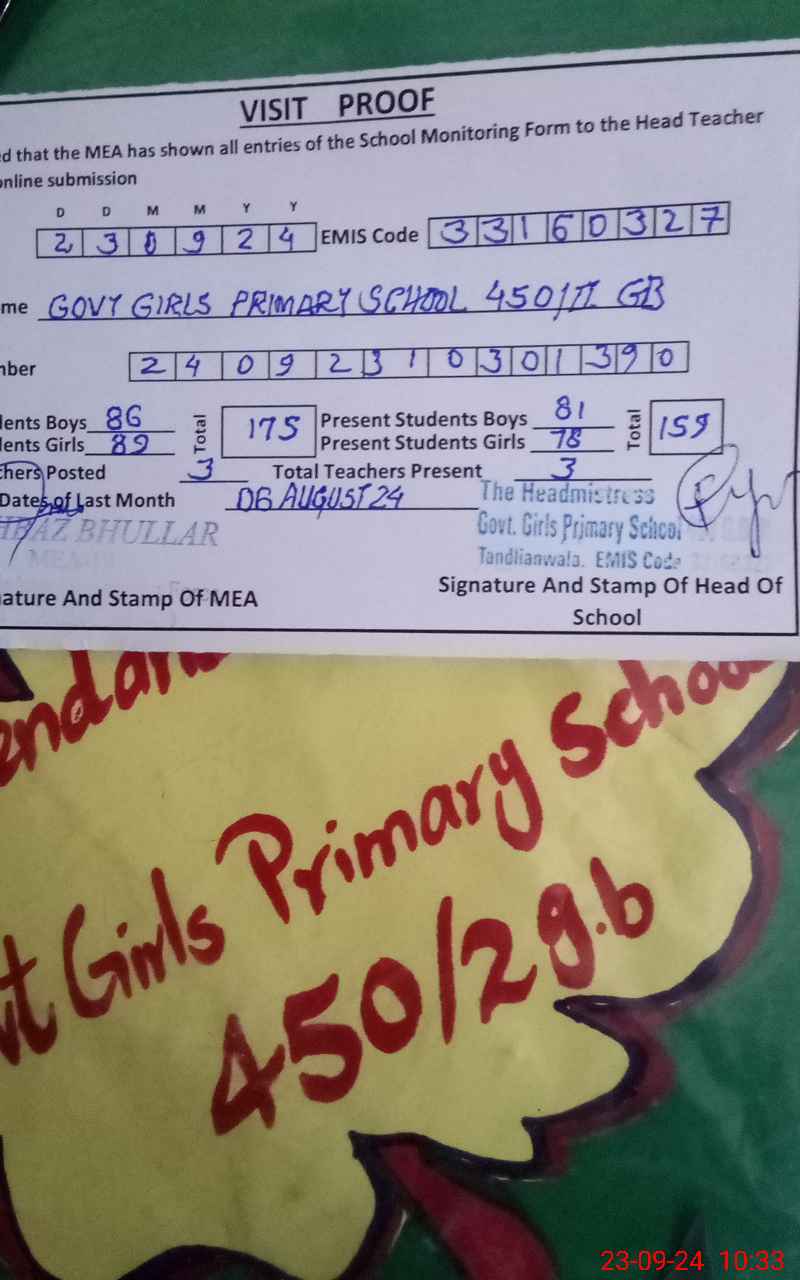 VISIT PROOF
d that the MEA has shown all entries of the School Monitoring Form to the Head Teacher
online submission
D D M M Y Y
2 3 0 9 2 4 EMIS Code 3 3 1 6 0 3 2 7
me GOVT GIRLS PRIMARY SCHOOL 450/II GB
nber 2 4 0 9 2 3 1 0 3 0 1 3 9 0
lents Boys 86 Total 175 Present Students Boys 81 Total 159
lents Girls 89 Present Students Girls 78
chers Posted 3 Total Teachers Present 3
Dates of Last Month 06 AUGUST 24
The Headmistress
BAZ BHULLAR
Govt. Girls Primary School
MEA
Tandlianwala. EMIS Code
ature And Stamp Of MEA
Signature And Stamp Of Head Of
School
endan
t Girls Primary School
450/2 g.b
23-09-24 10:33